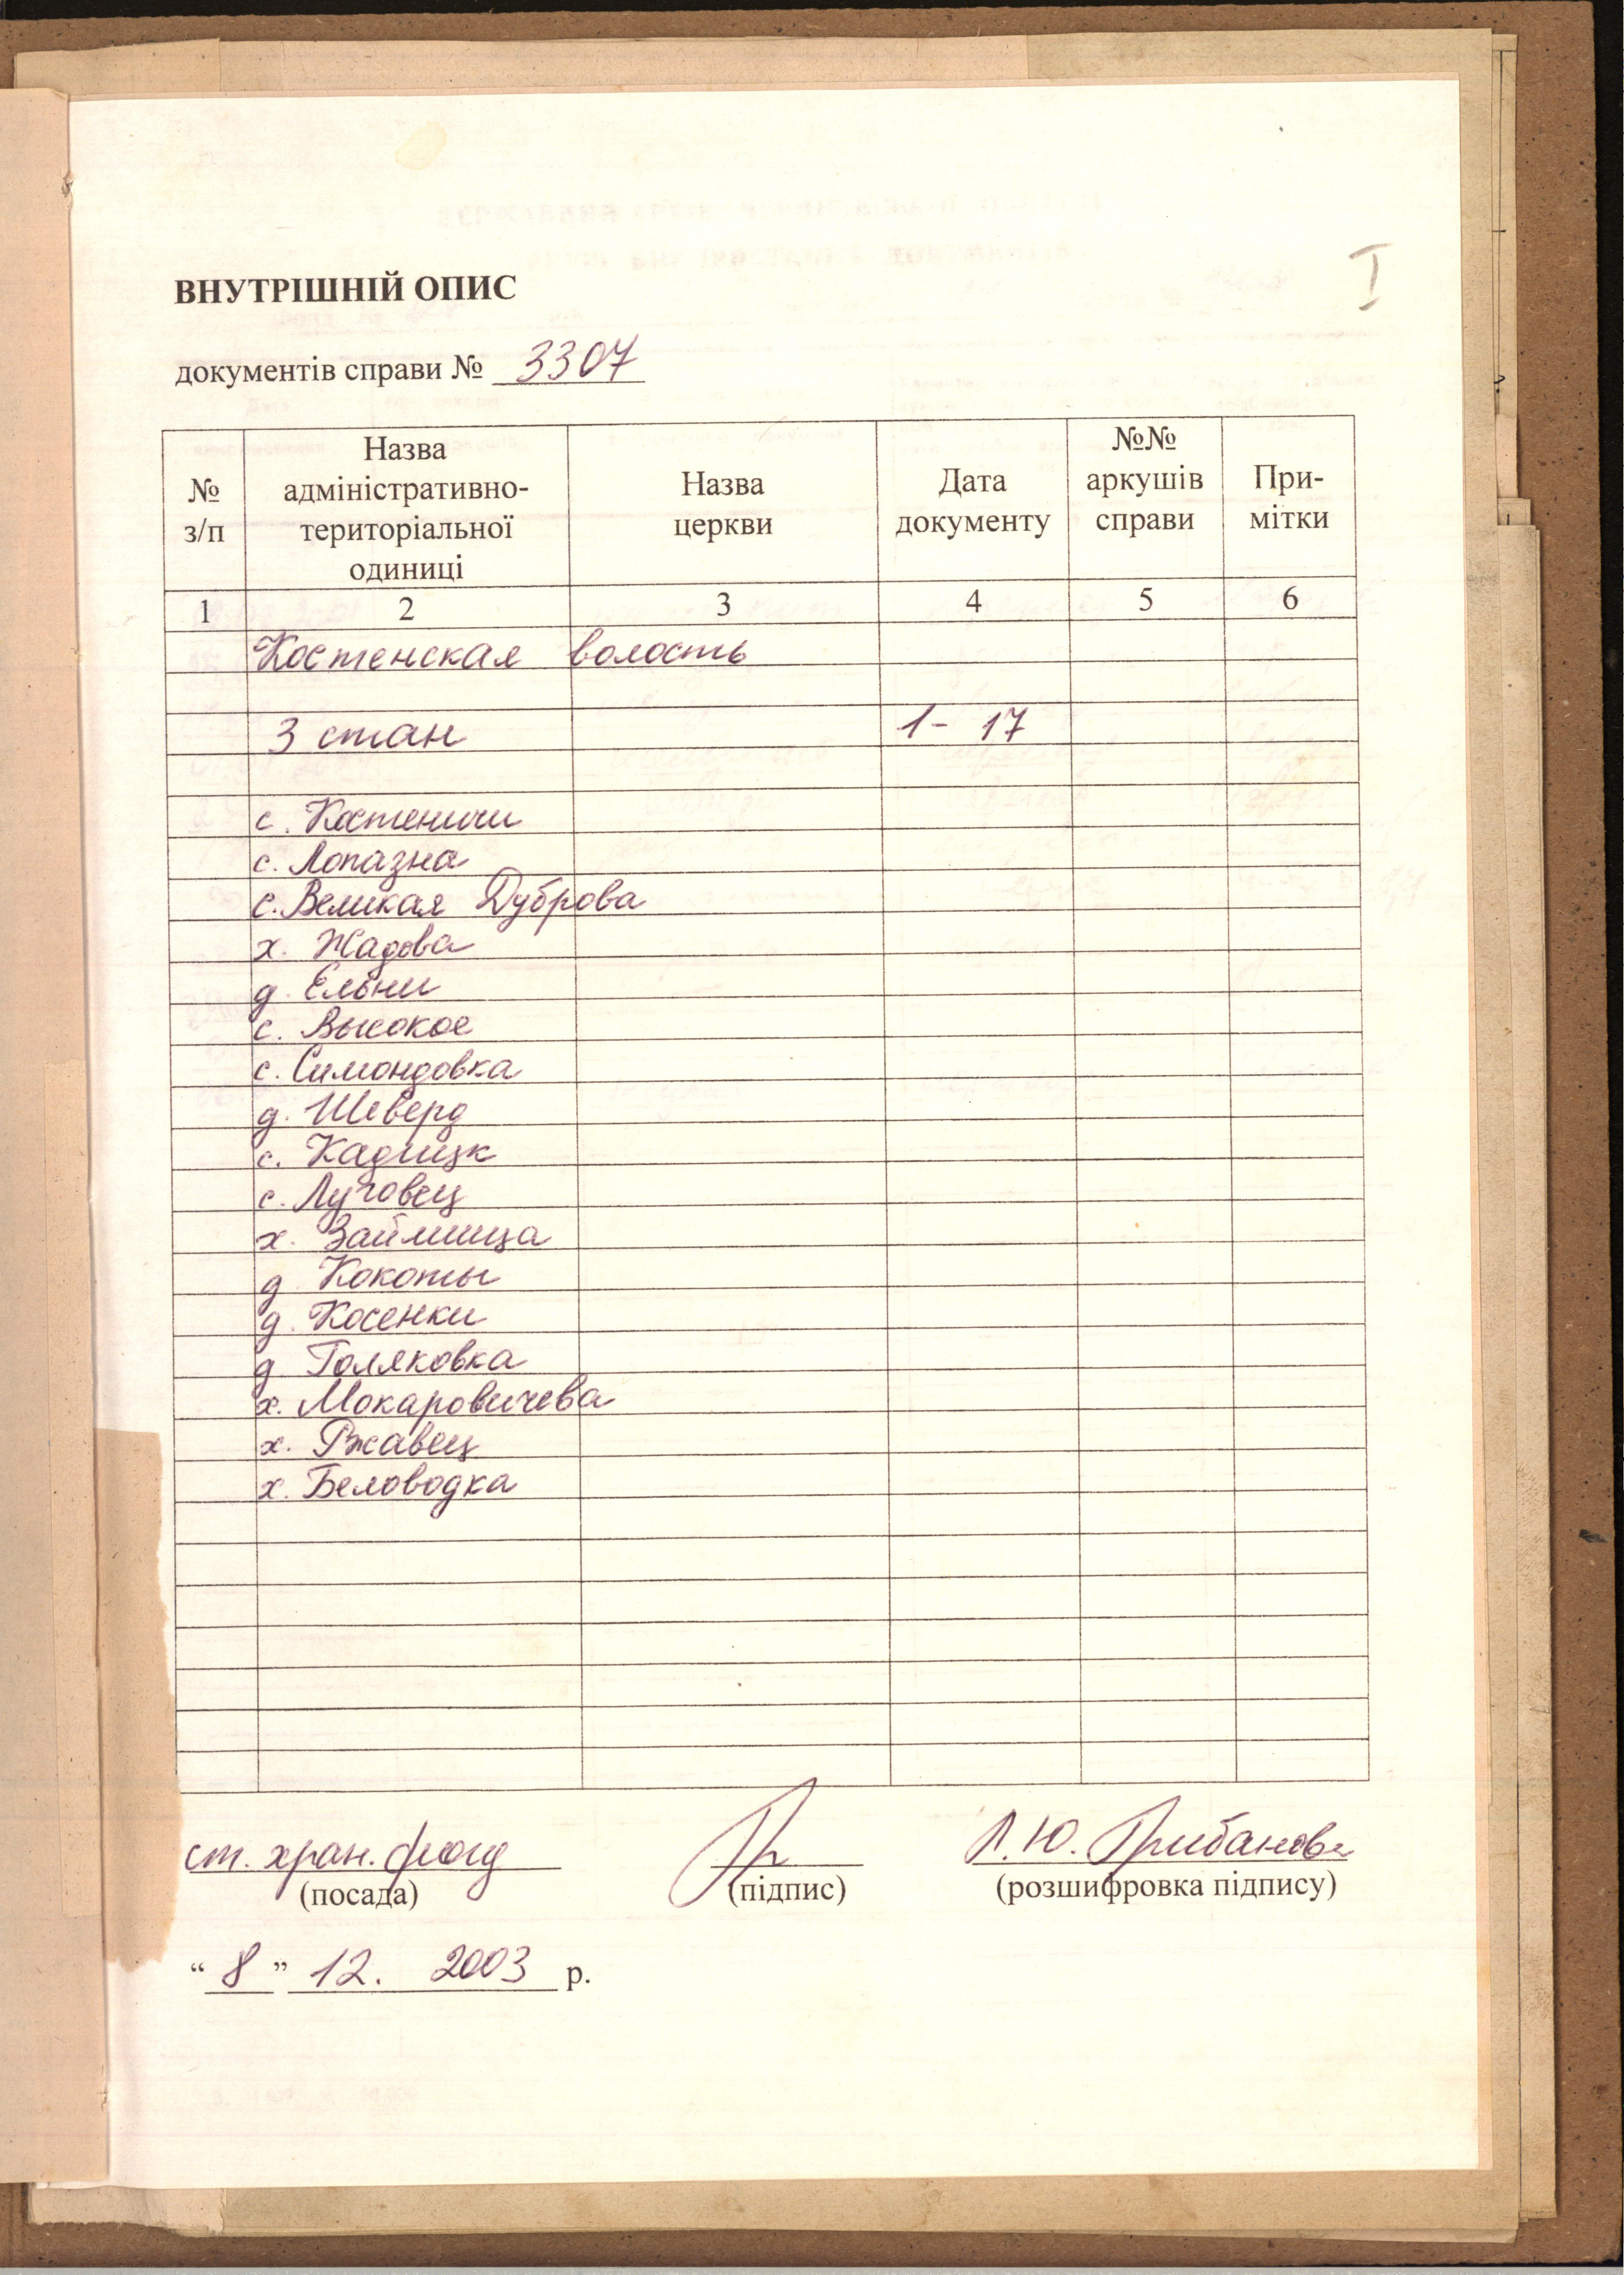 I
ВНУТРІШНІЙ ОПИС
документів справи № 3307
№ з/п
Назва адміністративно-територіальної одиниці
Назва церкви
Дата документу
№№ аркушів справи
При-мітки
1 2 3 4 5 6
Костенская волость
3 стан 1- 17
с. Костеничи
с. Лопазна
с. Великая Дуброва
х. Жадова
д. Ельни
с. Высокое
с. Симондовка
д. Шеверд
с. Кадицк
с. Луговец
х. Займища
д. Кокоты
д. Косенки
д. Голяковка
х. Мокаровичева
х. Ржавец
х. Беловодка
ст. хран. фонд Л. Ю. Грибанова
(посада) (підпис) (розшифровка підпису)
“ 8 ” 12. 2003 р.